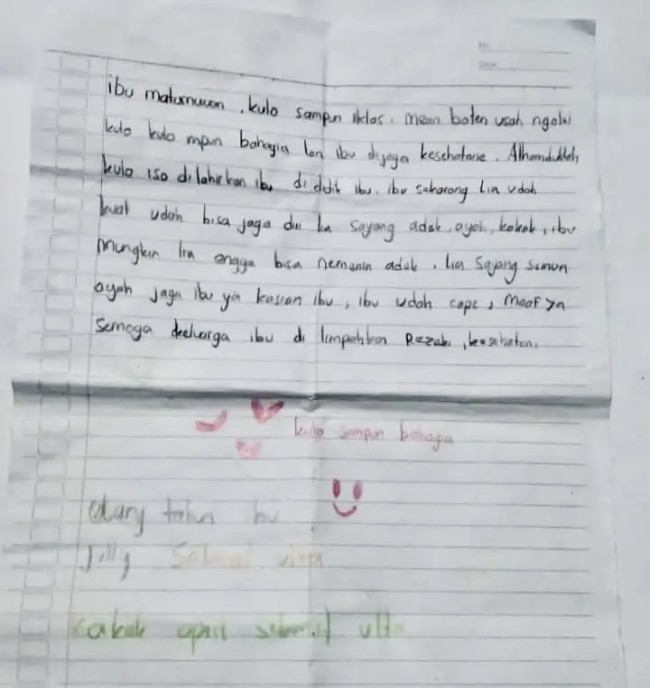 ibu maturnuwon, kulo sampun iklas. mean boten usah ngolai
kulo kulo mpun bahagia lan ibu dijaga kesehatane. Alhamdulilah
kulo iso di lahirkan ibu di didik ibu. ibu sakarang lia udah
kuat udah bisa jaga diri lia sayang adek, ayah, kakak, ibu
mungkin lia engga bisa nemanin adek. lia sayang semua
ayah jaga ibu ya kasian ibu, ibu udah cape, maaf ya
semoga ibu di limpahkan Rezeki, kesehatan.
kulo sampun bahagia
tahun ibu
selamat
kakak april selamat ult